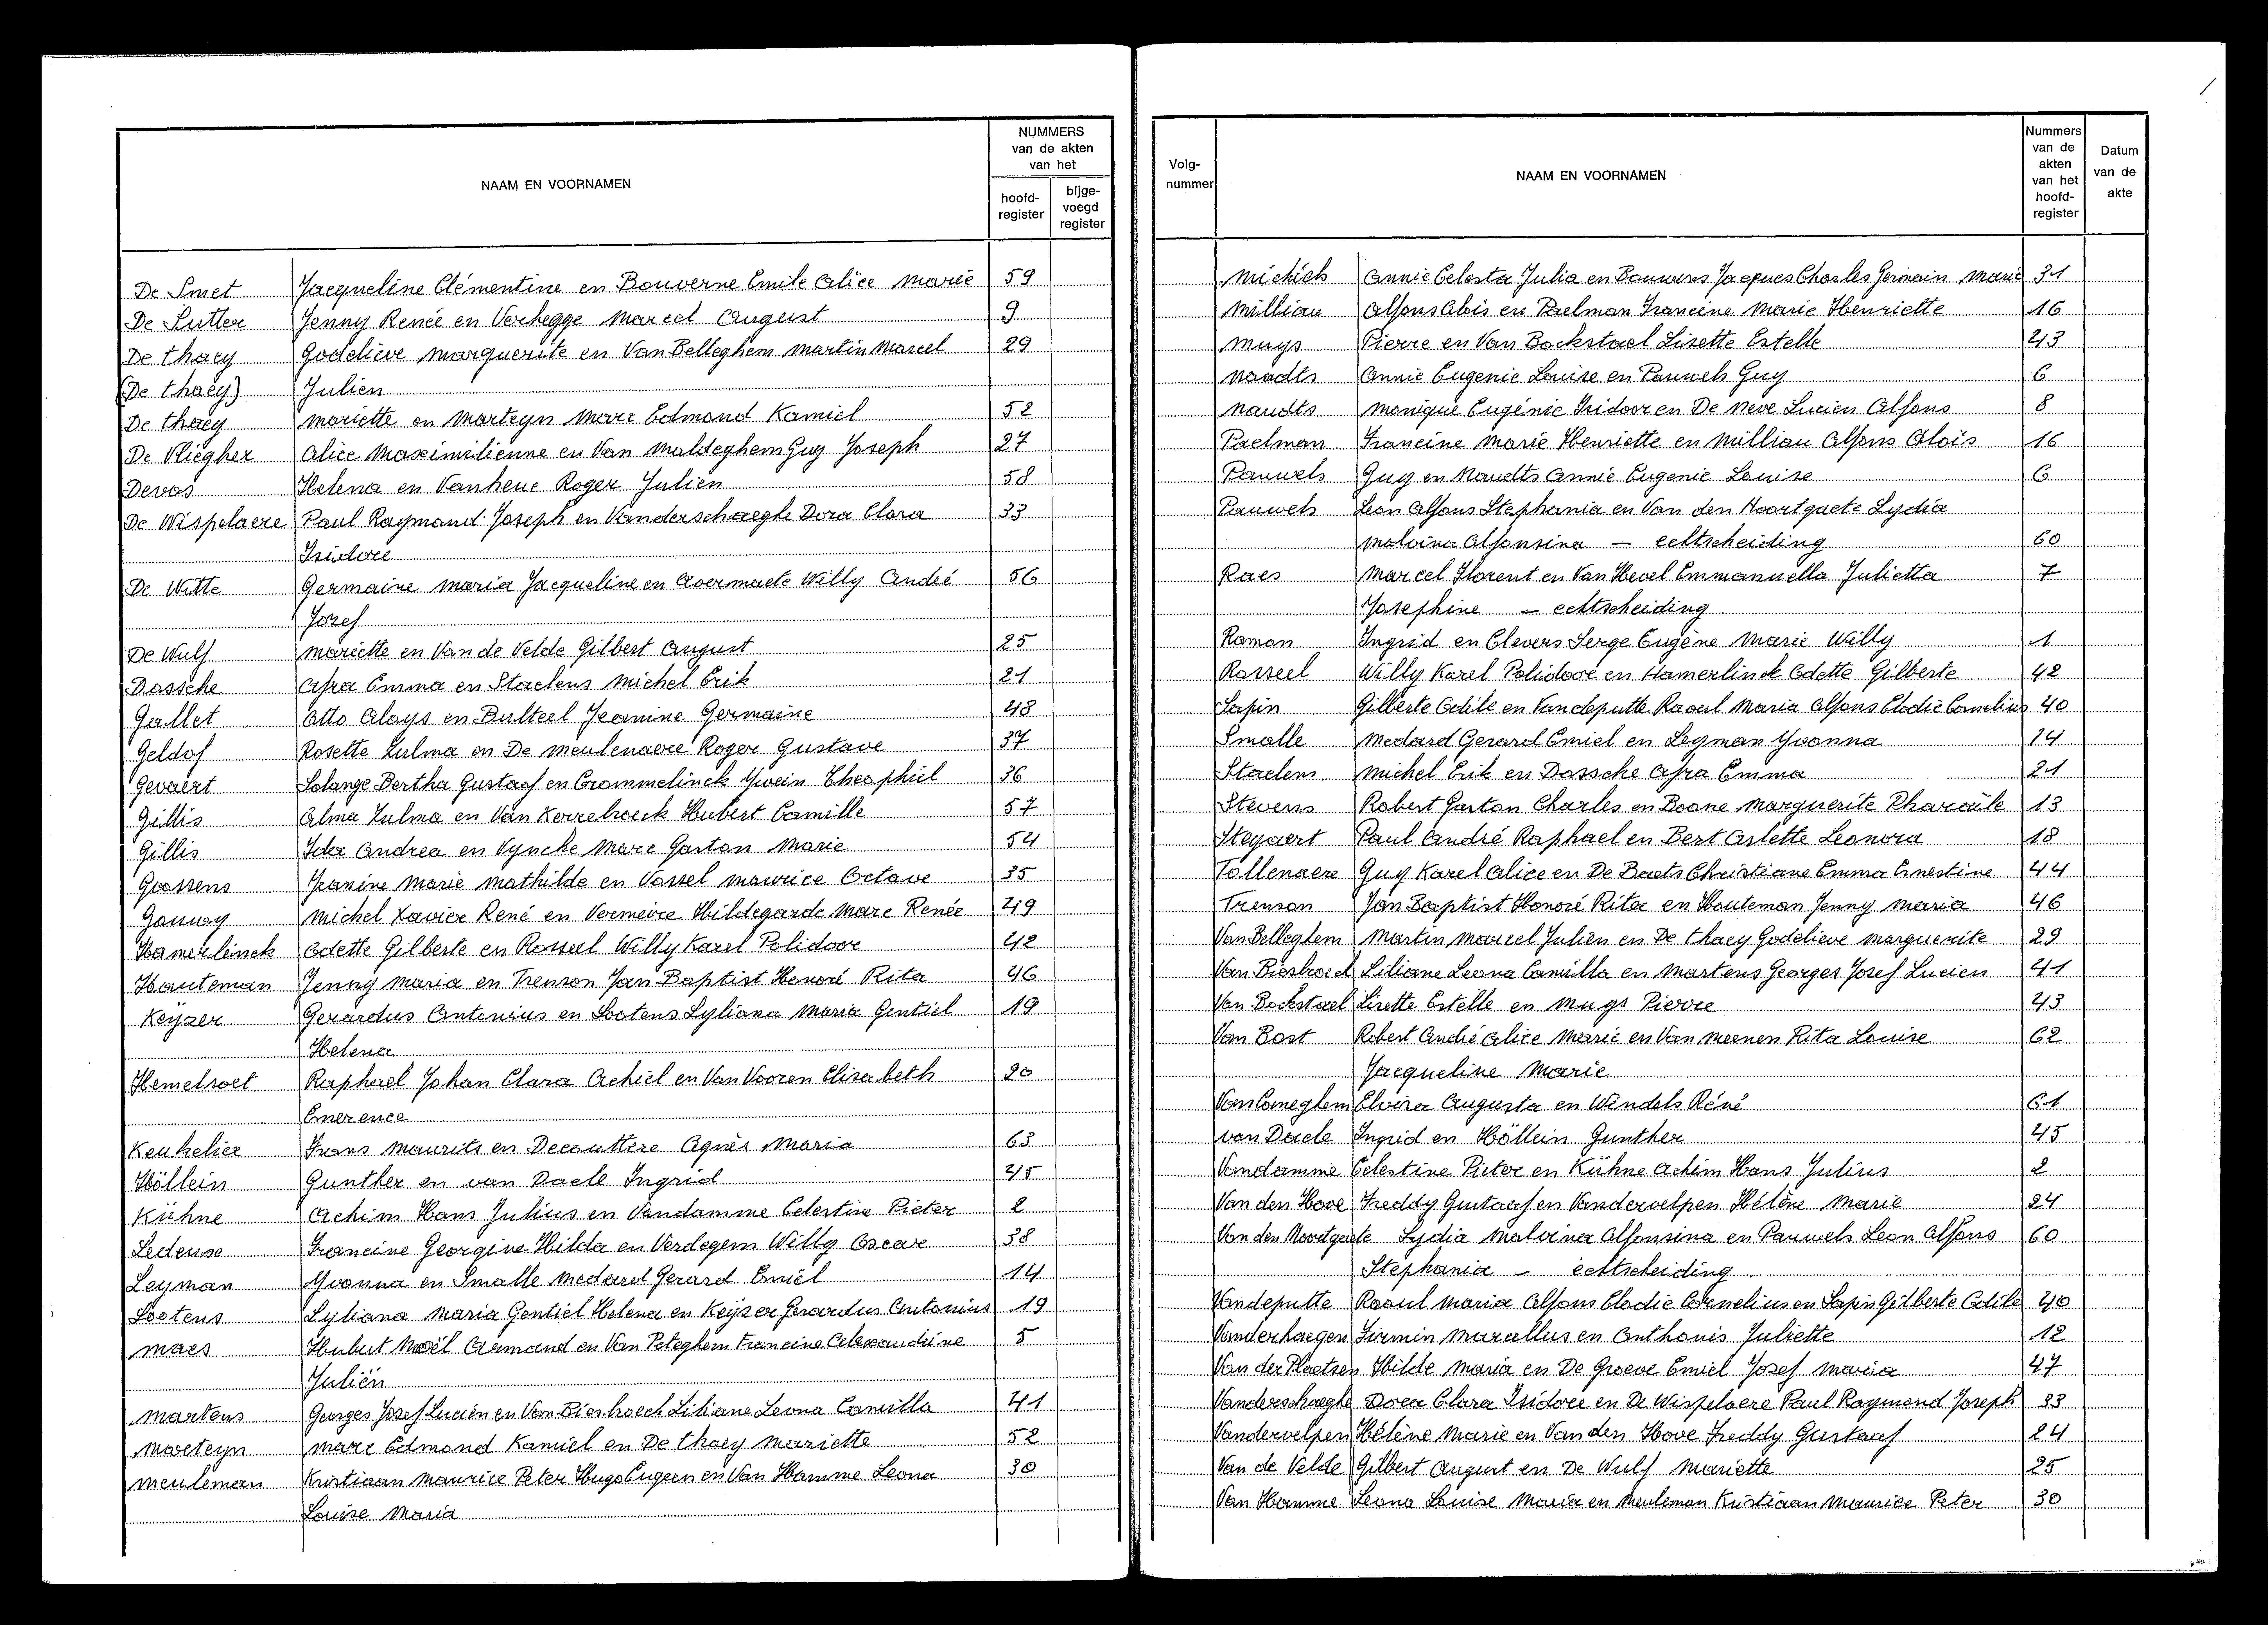 NAAM EN VOORNAMEN
NUMMERS
van de akten
van het
hoofd-
register
bijge-
voegd
register
De Smet Jacqueline Clémentine en Bouverne Emile Alice Marie 59
De Sutter Jenny Renée en Verhegge Marcel August 9
De Thaey Godelieve Marguerite en Van Belleghem Martin Marcel 29
(De Thaey) Julien
De Thaey Mariette en Marteyn Marc Edmond Kamiel 52
De Vliegher Alice Maximilienne en Van Maldeghem Guy Joseph 27
Devos Helena en Vanheue Roger Julien 58
De Wispelaere Paul Raymond Joseph en Vanderschaeghe Dora Clara 33
Isidore
De Witte Germaine Maria Jacqueline en Avermaete Willy André 56
Jozef
De Wulf Mariette en Van de Velde Gilbert August 25
Dossche Afra Emma en Staelens Michel Erik 21
Gallet Otto Aloys en Bulteel Jeanine Germaine 48
Geldof Rosette Zulma en De Meulenaere Roger Gustave 37
Gevaert Solange Bertha Gustaaf en Crommelinck Ywein Theophiel 36
Gillis Alma Zulma en Van Kerrebroeck Hubert Camille 57
Gillis Ida Andrea en Vyncke Marc Gaston Marie 54
Goossens Jeanine Marie Mathilde en Vassel Maurice Octave 35
Gounoy Michel Xavier René en Vermeire Hildegarde Marc Renée 49
Hamerlinck Odette Gilberte en Rosseel Willy Karel Polidoor 42
Houteman Jenny Maria en Trenson Jan Baptist Honoré Rita 46
Keyzer Gerardus Antonius en Lootens Lyliana Maria Gentiel 19
Helena
Hemelsoet Raphaël Johan Clara Achiel en Van Vooren Elisabeth 20
Emerence
Keukelier Frans Maurits en Decouttere Agnès Maria 63
Höllein Gunther en van Daele Ingrid 45
Kühne Achim Hans Julius en Vandamme Celestine Pieter 2
Ledeuse Francine Georgine Hilda en Verdegem Willy Oscar 38
Leyman Yvonna en Smalle Medard Gerard Emiel 14
Lootens Lyliana Maria Gentiel Helena en Keyzer Gerardus Antonius 19
Maes Hubert Noël Armand en Van Peteghem Francine Alexandrine 5
Juliën
Martens Georges Jozef Lucien en Van Biesbroeck Liliane Leona Camilla 41
Marteyn Marc Edmond Kamiel en De Thaey Mariette 52
Meuleman Kristiaan Maurice Peter Hugo Eugeen en Van Hamme Leona 30
Louise Maria
Volg-
nummer
NAAM EN VOORNAMEN
Nummers
van de
akten
van het
hoofd-
register
Datum
van de
akte
Michiels Annie Celesta Julia en Bauwens Jacques Charles Germain Marie 31
Milliau Alfons Alois en Paelman Francine Marie Henriette 16
Muys Pierre en Van Bockstael Lisette Estelle 43
Naudts Annie Eugenie Louise en Pauwels Guy 6
Naudts Monique Eugénie Isidoor en De Neve Lucien Alfons 8
Paelman Francine Marie Henriette en Milliau Alfons Aloïs 16
Pauwels Guy en Naudts Annie Eugenie Louise 6
Pauwels Leon Alfons Stephania en Van den Noortgaete Lydia
Malvina Alfonsina — echtscheiding 60
Raes Marcel Florent en Van Hevel Emmanuella Julietta 7
Josephine — echtscheiding
Roman Ingrid en Clevers Serge Eugène Marie Willy 1
Rosseel Willy Karel Polidoor en Hamerlinck Odette Gilberte 42
Sapin Gilberte Odile en Vandeputte Raoul Maria Alfons Elodie Cornelius 40
Smalle Medard Gerard Emiel en Leyman Yvonna 14
Staelens Michel Erik en Dossche Afra Emma 21
Stevens Robert Gaston Charles en Boone Marguerite Pharaïle 13
Steyaert Paul André Raphael en Bert Arlette Leonora 18
Tollenaere Guy Karel Alice en De Baets Christiane Emma Ernestine 44
Trenson Jan Baptist Honoré Rita en Houteman Jenny Maria 46
Van Belleghem Martin Marcel Julien en De Thaey Godelieve Marguerite 29
Van Biesbroeck Liliane Leona Camilla en Martens Georges Jozef Lucien 41
Van Bockstael Lisette Estelle en Muys Pierre 43
Van Bost Robert André Alice Marie en Van Meenen Rita Louise 62
Jacqueline Marie
Van Coneghem Elvira Augusta en Windels Réné 61
van Daele Ingrid en Höllein Gunther 45
Vandamme Celestine Pieter en Kühne Achim Hans Julius 2
Van den Hove Freddy Gustaaf en Vandervelpen Hélène Marie 24
Van den Noortgaete Lydia Malvina Alfonsina en Pauwels Leon Alfons 60
Stephania — echtscheiding
Vandeputte Raoul Maria Alfons Elodie Cornelius en Sapin Gilberte Odile 40
Vanderhaegen Firmin Marcellus en Anthonis Juliette 12
Van der Plaetsen Hilde Maria en De Groeve Emiel Jozef Maria 47
Vanderschaeghe Dora Clara Isidore en De Wispelaere Paul Raymond Joseph 33
Vandervelpen Hélène Marie en Van den Hove Freddy Gustaaf 24
Van de Velde Gilbert August en De Wulf Mariette 25
Van Hamme Leona Louise Maria en Meuleman Kristiaan Maurice Peter 30